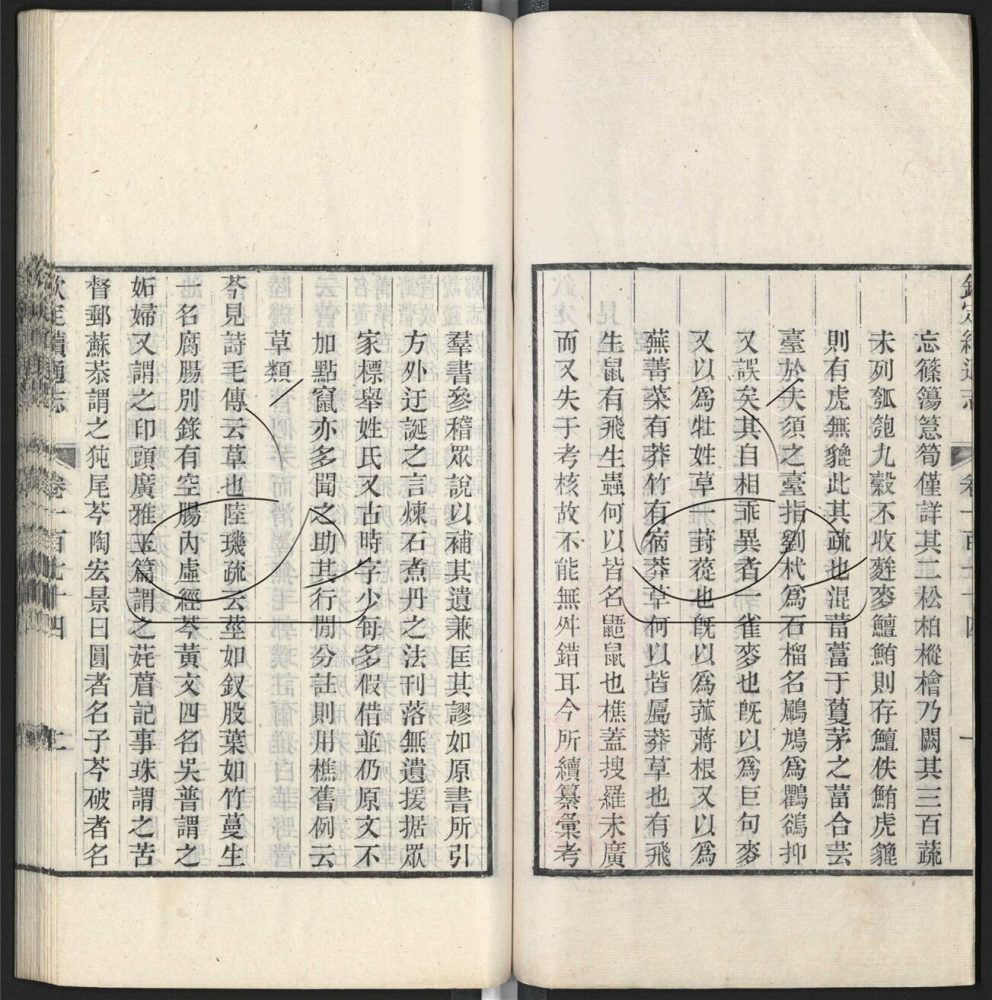 忘篠簜䇶筍僅詳其二松柏樅檜乃闕其三百蔬
未列瓠匏九穀不收麰麥鱣鮪則存鱣佚鮪虎貔
則有虎無貔此其疏也混蕾蕾于藑茅之葍合芸
臺於夫須之臺指劉杙爲石榴名鷉鴆爲鸜鵒抑
又誤矣其自相乖異者一雀麥也旣以爲巨句麥
又以爲牡姓草一葑蓯也旣以爲菰蔣根又以爲
蕪菁菜有莽竹有宿莽草何以皆屬莽草也有飛
生鼠有飛生蟲何以皆名鼯鼠也樵蓋搜羅未廣
而又失于考核故不能無舛錯耳今所續纂彙考
羣書參稽眾說以補其遺兼匡其謬如原書所引
方外迂誕之言煉石煮丹之法刊落無遺援据眾
家標舉姓氏又古時字少每多假借並仍原文不
加點竄亦多聞之助其行閒分註則用樵舊例云
草類
芩見詩毛傳云草也陸璣疏云莖如釵股葉如竹蔓生
一名腐腸別錄有空腸內虛經芩黃文四名吳普謂之
妬婦又謂之印頭廣雅玉篇謂之菧葿記事珠謂之苦
督郵蘇恭謂之㹠尾芩陶宏景曰圓者名子芩破者名
欽定續通志 卷一百七十四 二